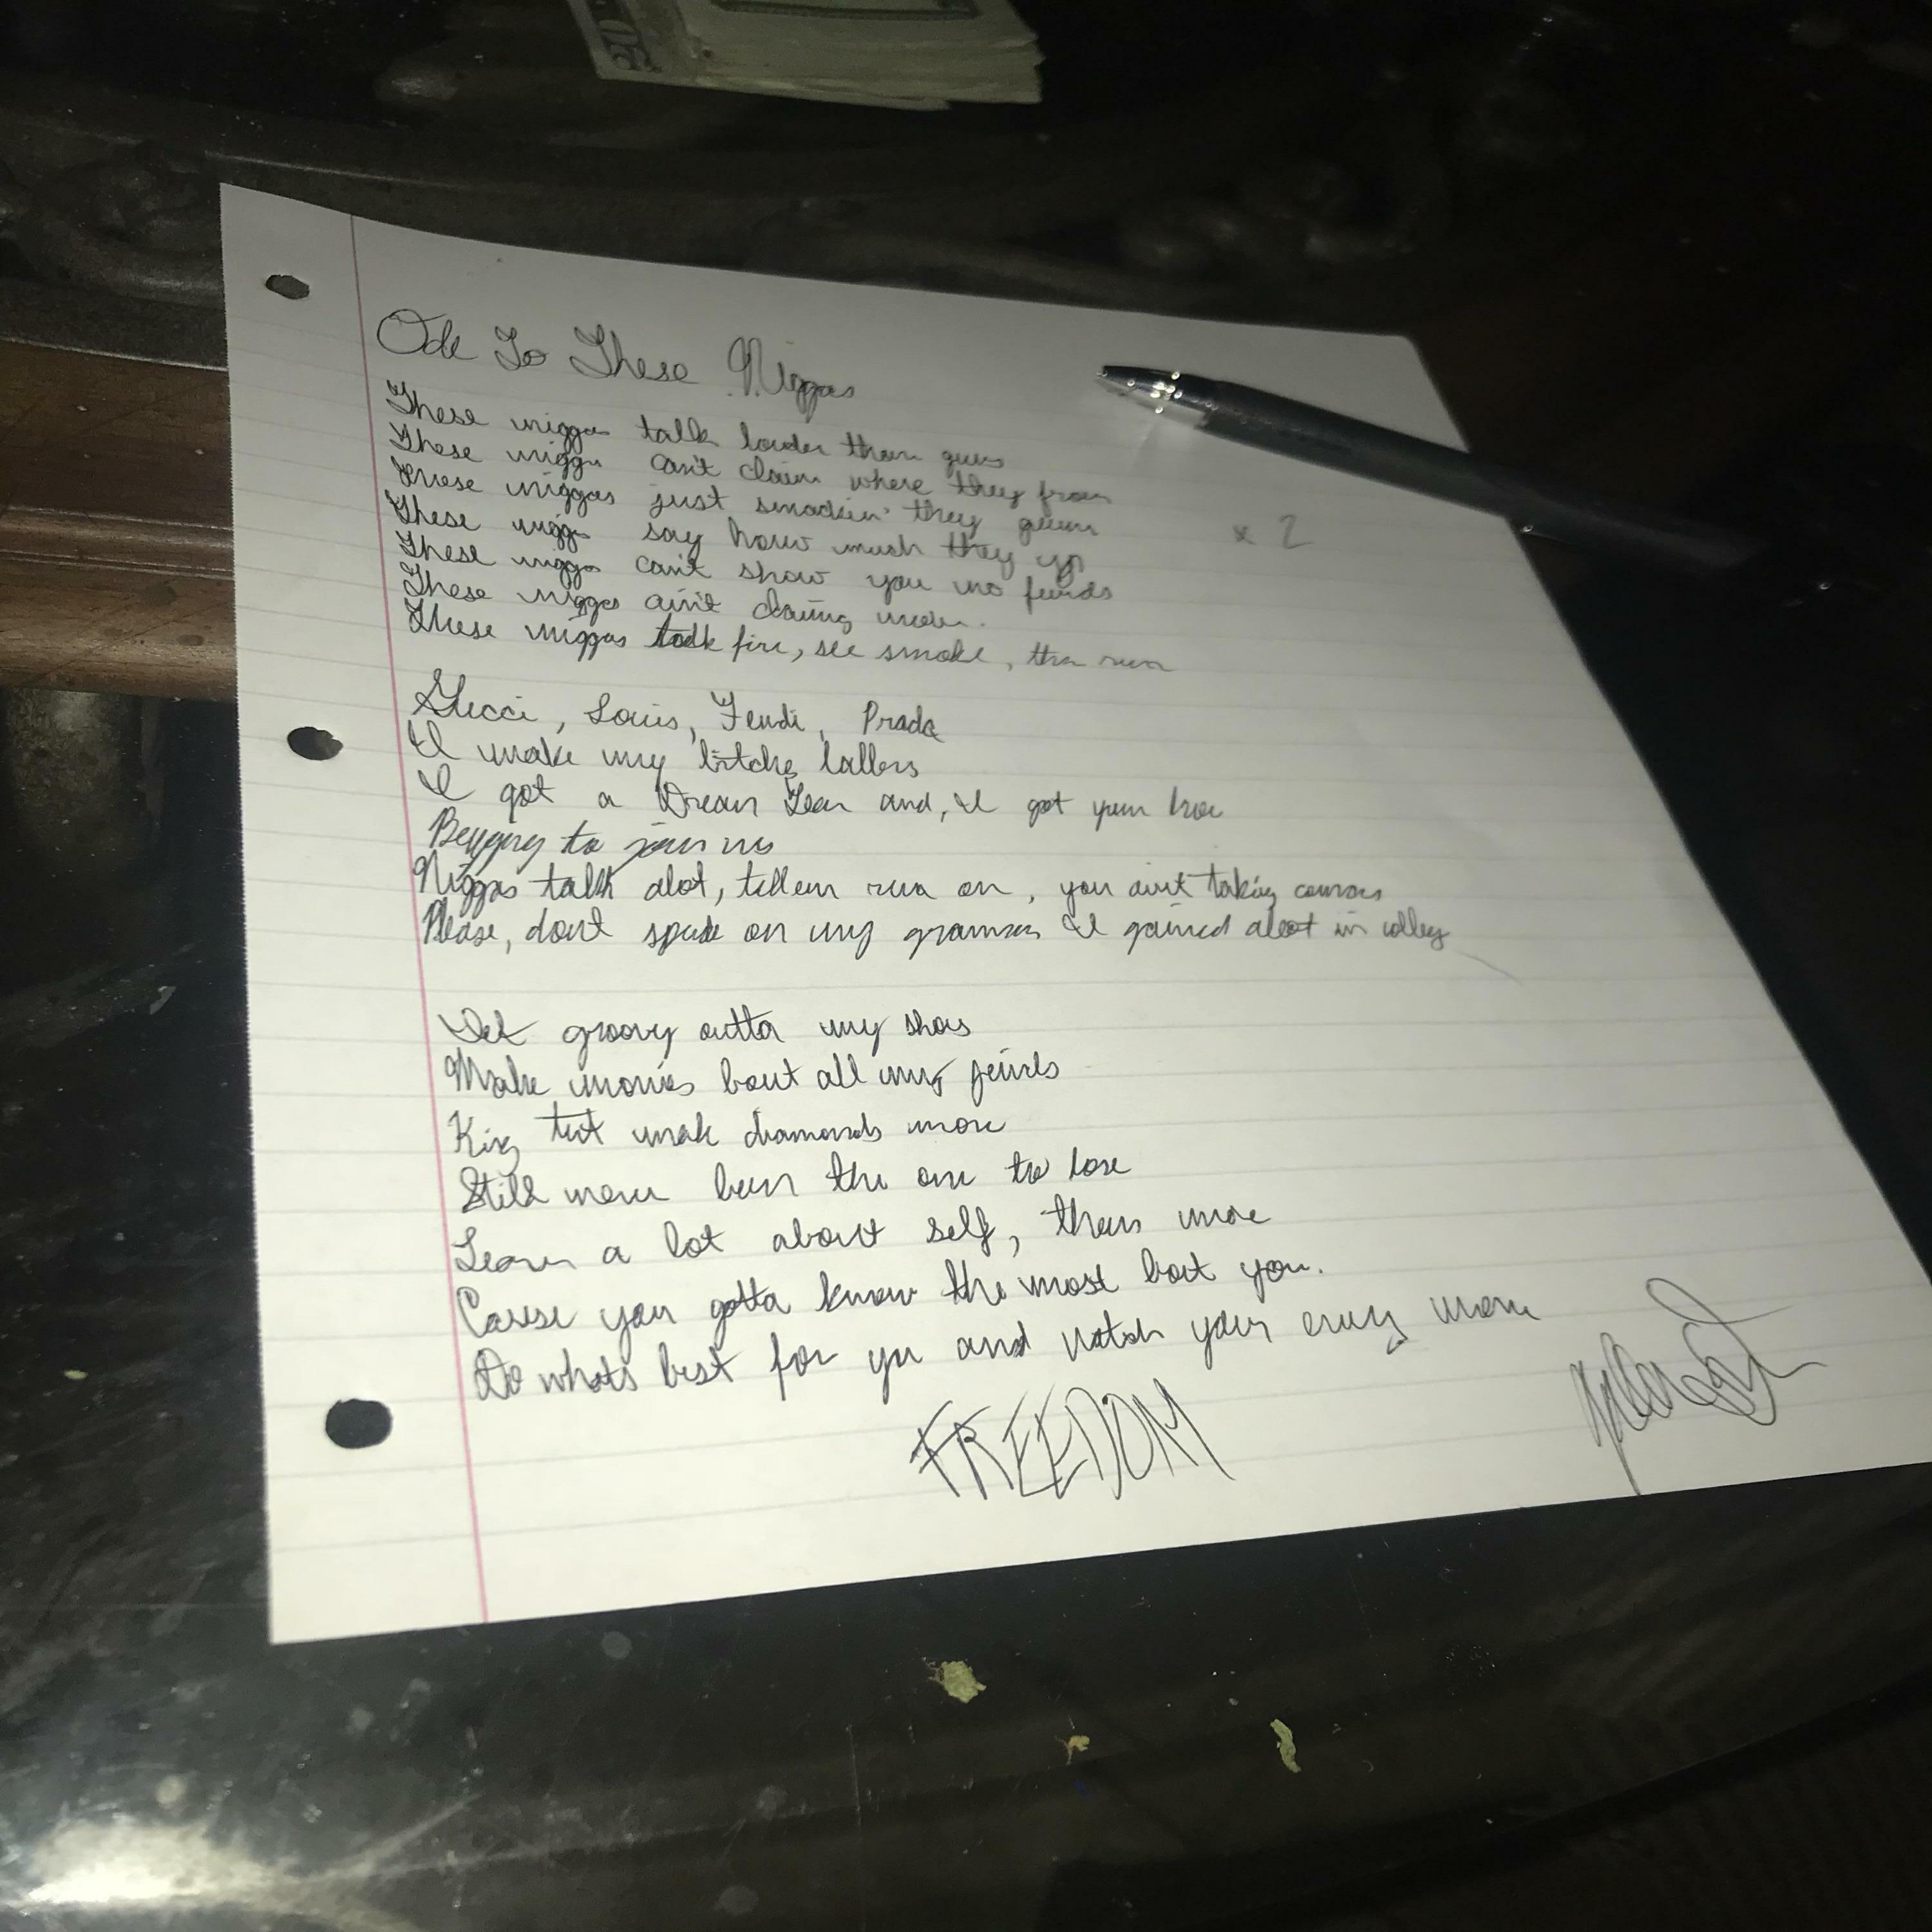 20
Ode To These Niggas
These niggas talk louder than guns
These niggas can't claim where they from
These niggas just smackin' they gums
These niggas say how much they up
These niggas can't show you no funds
These niggas ain't
These niggas talk fire, see smoke, then run
x 2
Gucci, Louis, Fendi, Prada
I make my bitches
I got a Dream Team and, I got your hoe
Begging to join us
Niggas talk alot, tell em run on, you aint taking
Please, dont speak on my grammar I gained alot in
Get groovy outta my shoes
Make movies bout all my jewels
King tut diamonds more
Still never been the one to lose
Learn a lot about self, then more
Cause you gotta know the most bout you.
Do whats best for you and watch your enemy move
FREEDOM